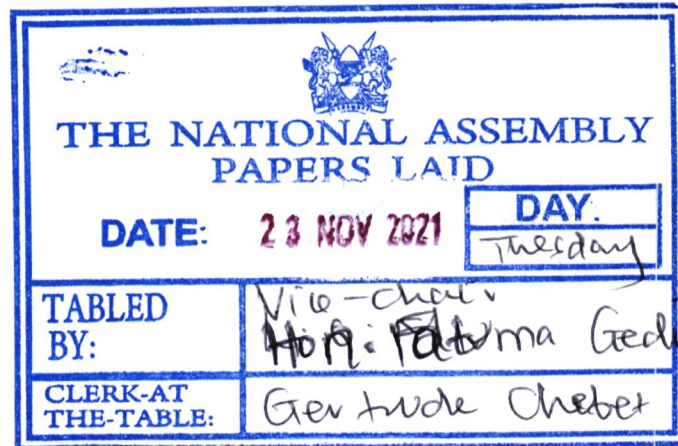 THE NATIONAL ASSEMBLY
PAPERS LAID
DATE: 23 NOV 2021
DAY.
Tuesday
TABLED BY:
Vice-chair
Hon. Fatuma Gedi
CLERK-AT THE-TABLE:
Gertrude Chebet